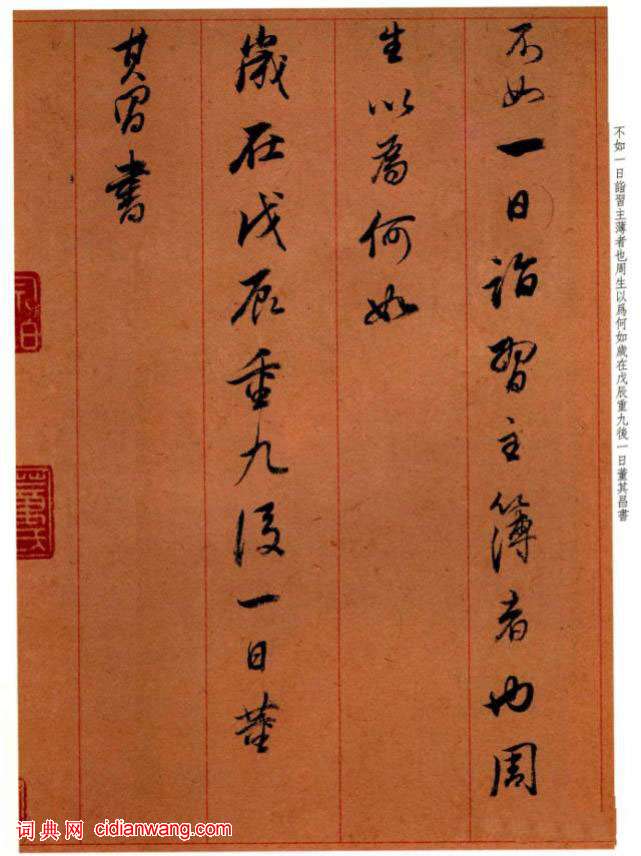 不如一日詣習主簿者也周
生以為何如
歲在戊辰重九後一日董
其昌書
不如一日詣習主薄者也周生以爲何如歲在戊辰重九後一日董其昌書
词典网 cidianwang.com